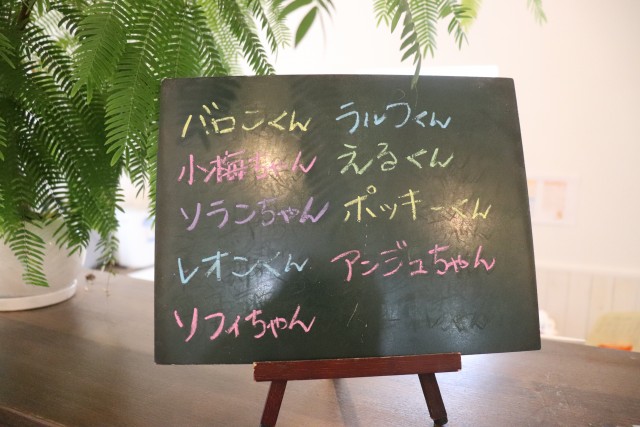 バロンくん
小梅ちゃん
ソランちゃん
レオンくん
ソフィちゃん
ラルフくん
えるくん
ポッキーくん
アンジュちゃん